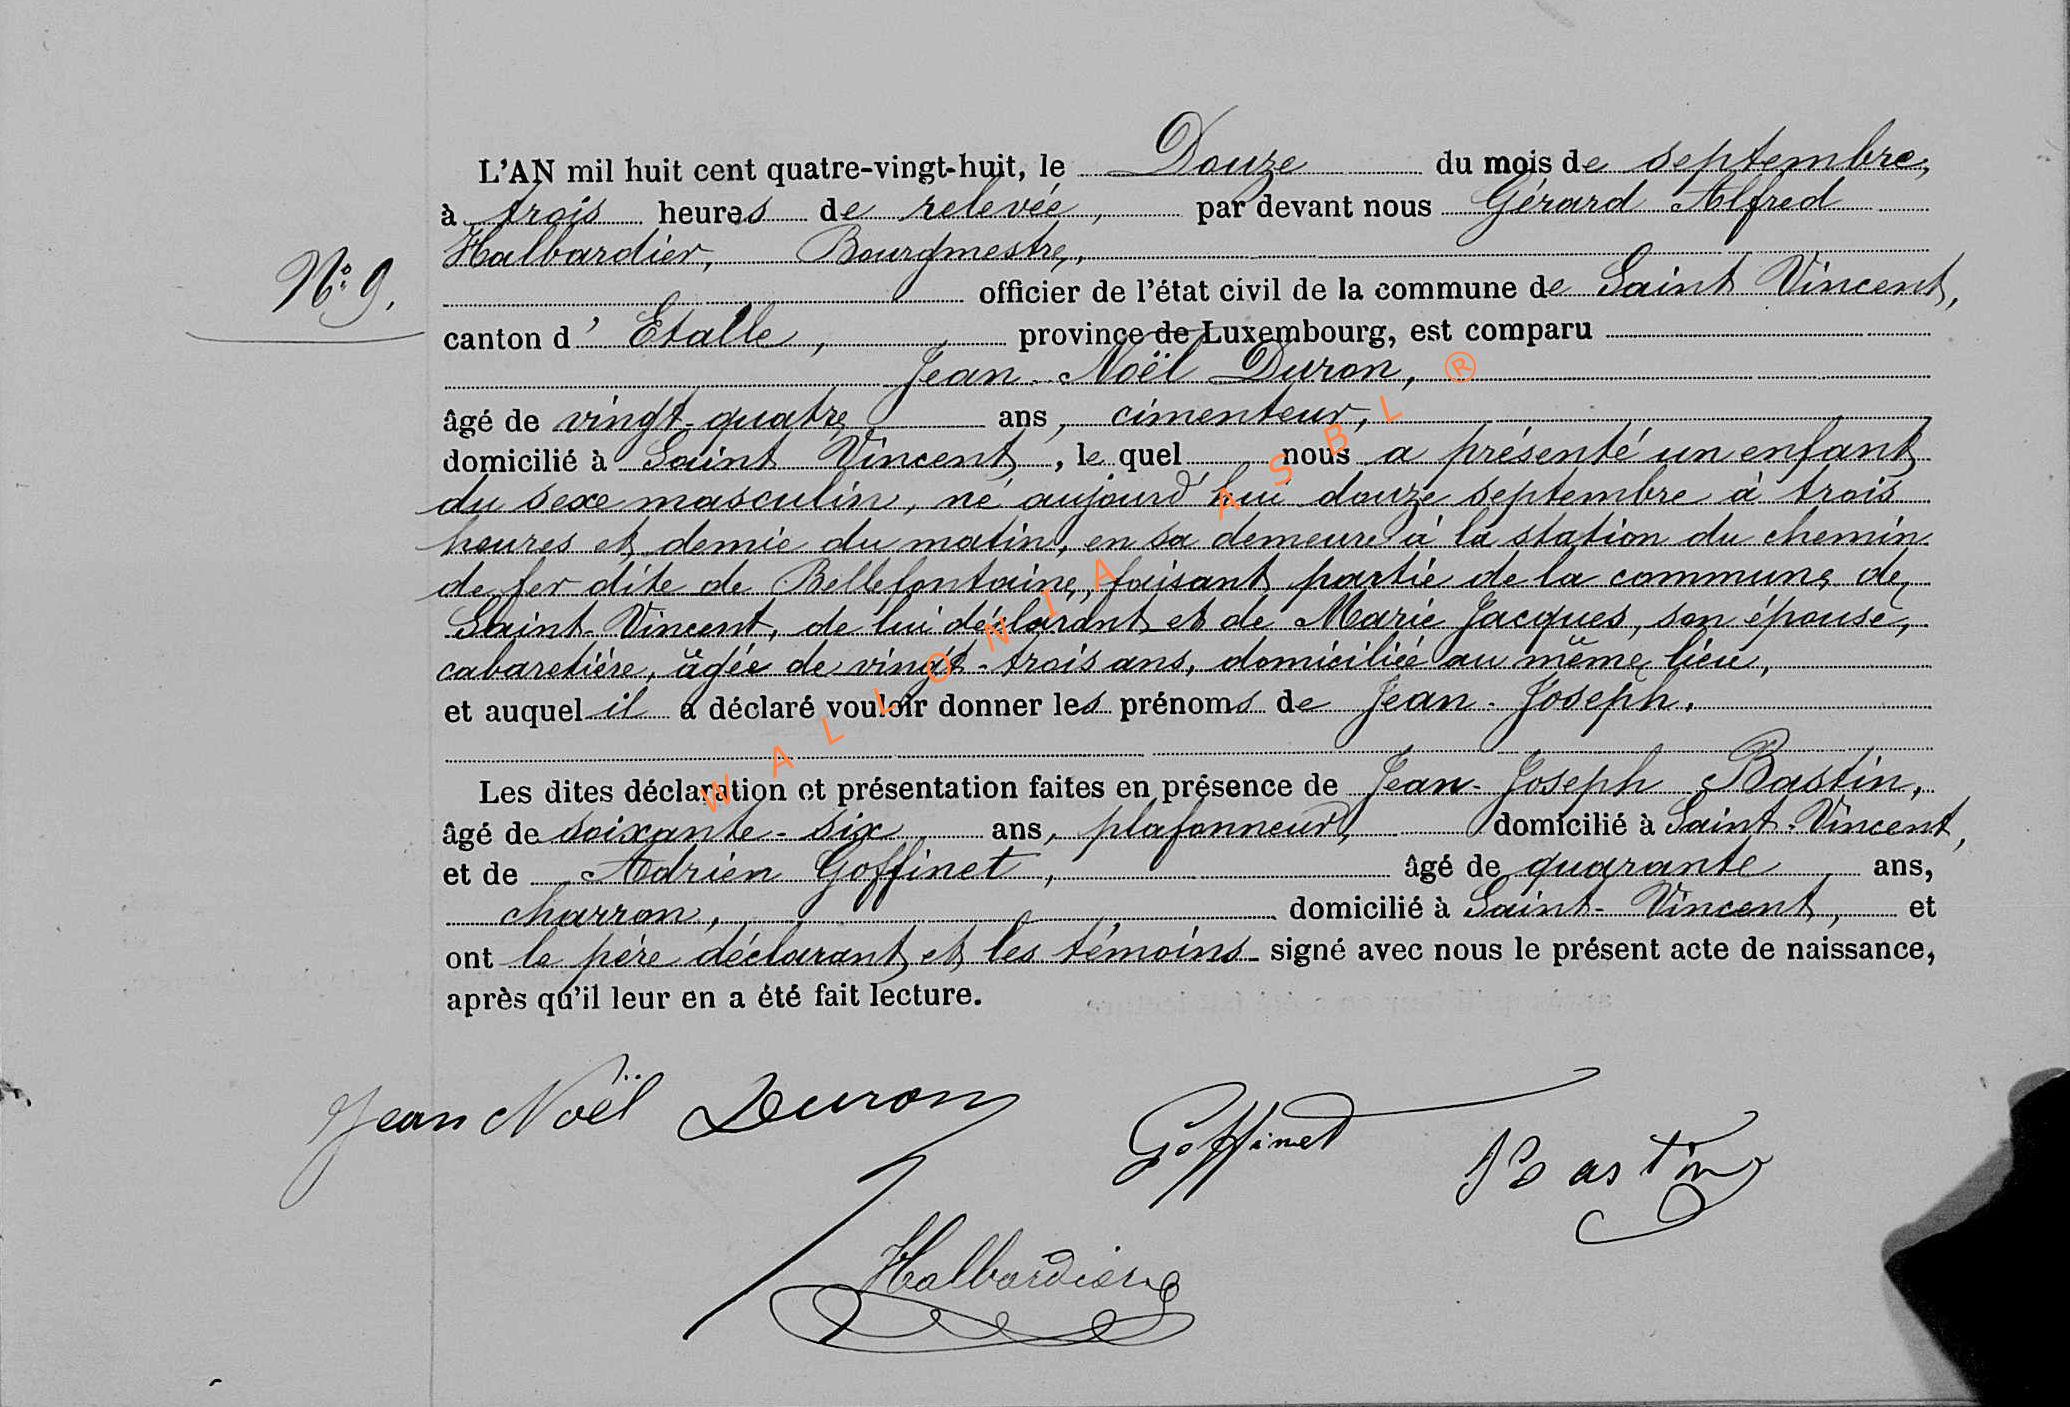 L'AN mil huit cent quatre-vingt-huit, le Douze du mois de septembre,
à trois heures de relevée, par devant nous Gérard Alfred
Halbardier, Bourgmestre,
N° 9.
officier de l'état civil de la commune de Saint Vincent,
canton d' Etalle, province de Luxembourg, est comparu
Jean-Noël Duron,
âgé de vingt-quatre ans, cimenteur,
domicilié à Saint Vincent, le quel nous a présenté un enfant
du sexe masculin, né aujourd'hui douze septembre à trois
heures et demie du matin, en sa demeure à la station du chemin
de fer dite de Bellefontaine, faisant partie de la commune de
Saint-Vincent, de lui déclarant et de Marie Jacques, son épouse,
cabaretière, âgée de vingt-trois ans, domiciliée au même lieu,
et auquel il a déclaré vouloir donner les prénoms de Jean-Joseph.
Les dites déclaration et présentation faites en présence de Jean-Joseph Bastin,
âgé de soixante-six ans, plafonneur, domicilié à Saint-Vincent,
et de Adrien Goffinet, âgé de quarante ans,
charron, domicilié à Saint-Vincent, et
ont le père déclarant et les témoins signé avec nous le présent acte de naissance,
après qu'il leur en a été fait lecture.
Jean Noël Duron Goffinet Bastin
Halbardier
WALLONIA ASBL ®